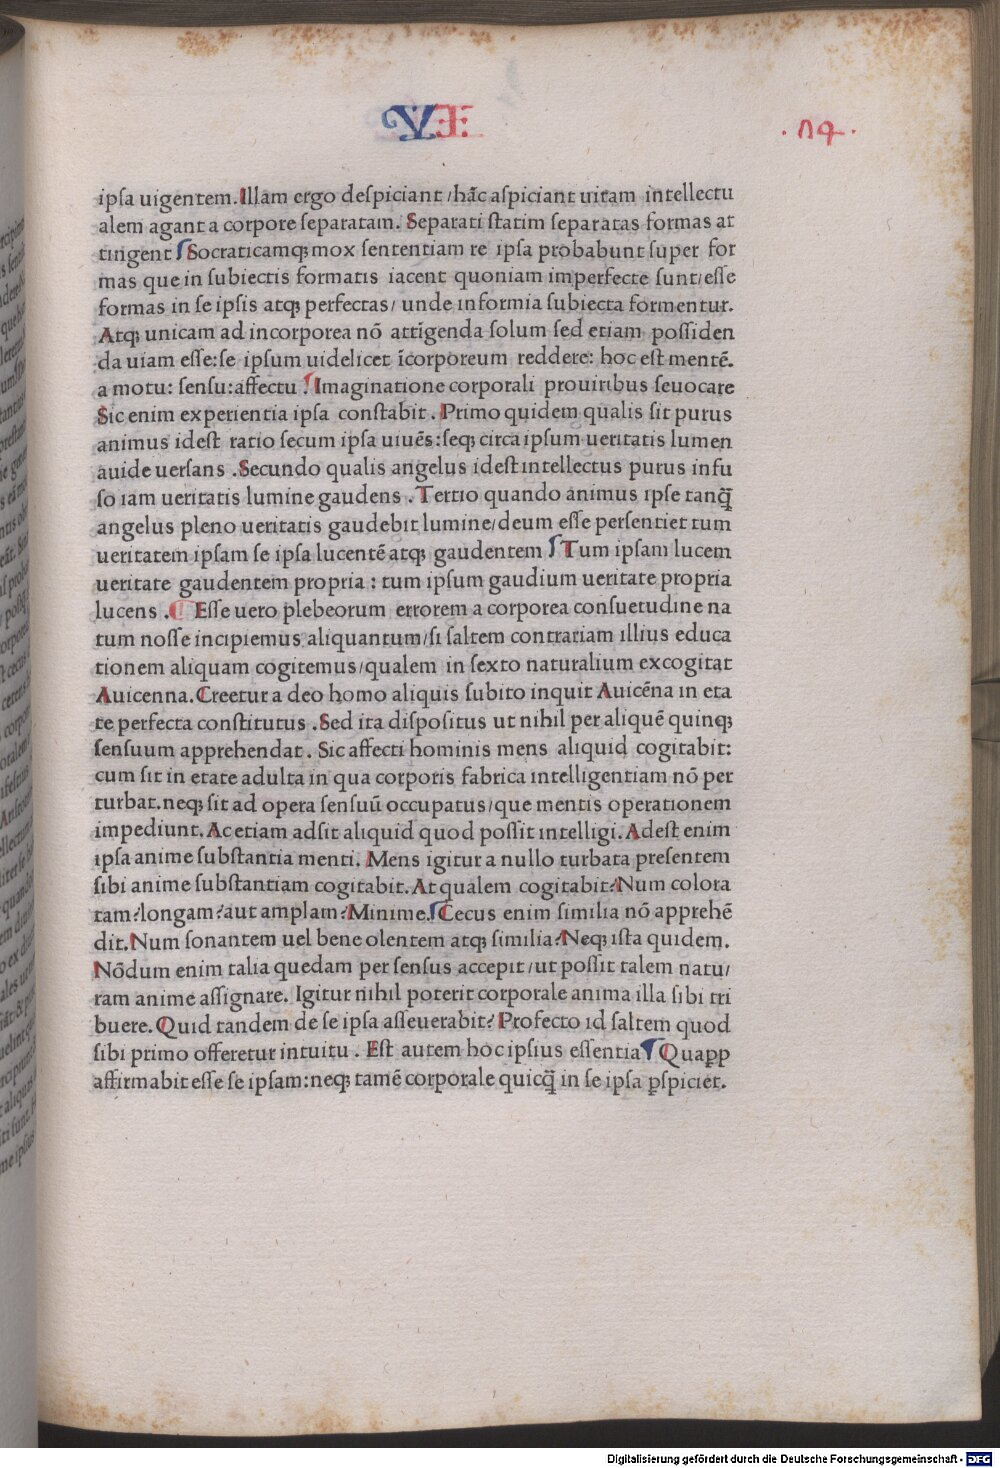 VI
.114.
ipſa uigentem. Illam ergo deſpiciant/hāc aſpiciant uitam intellectu
alem agant a corpore ſeparatam. Separati ſtatim ſeparatas formas at
tingent Socraticamqꝫ mox ſententiam re ipſa probabunt ſuper for
mas que in ſubiectis formatis iacent quoniam imperfecte ſunt/eſſe
formas in ſe ipſis atqꝫ perfectas/ unde informia ſubiecta formentur.
Atqꝫ unicam ad incorporea nō attīgenda ſolum ſed etiam poſſiden
da uiam eſſe:ſe ipſum uidelicet īcorporeum reddere: hoc eſt mentē.
a motu: ſenſu:affectu: Imaginatione corporali prouiribus ſeuocare
Sic enim experientia ipſa conſtabit. Primo quidem qualis ſit purus
animus ideſt ratio ſecum ipſa uiuēs:ſeqꝫ circa ipſum ueritatis lumen
auide uerſans. Secundo qualis angelus ideſt intellectus purus infu
ſo iam ueritatis lumine gaudens. Tertio quando animus ipſe tanq̄
angelus pleno ueritatis gaudebit lumine/deum eſſe perſentiet tum
ueritatem ipſam ſe ipſa lucentē atqꝫ gaudentem Tum ipſam lucem
ueritate gaudentem propria: tum ipſum gaudium ueritate propria
lucens. Eſſe uero plebeorum errorem a corporea conſuetudine na
tum noſſe incipiemus aliquantum/ſi ſaltem contrariam illius educa
tionem aliquam cogitemus/qualem in ſexto naturalium excogitat
Auicenna. Creetur a deo homo aliquis ſubito inquit Auicēna in eta
te perfecta conſtitutus. Sed ita diſpoſitus ut nihil per aliquē quinqꝫ
ſenſuum apprehendat. Sic affecti hominis mens aliquid cogitabit:
cum ſit in etate adulta in qua corporis fabrica intelligentiam nō per
turbat. neqꝫ ſit ad opera ſenſuū occupatus/que mentis operationem
impediunt. Ac etiam adſit aliquid quod poſſit intelligi. Adeſt enim
ipſa anime ſubſtantia menti. Mens igitur a nullo turbata preſentem
ſibi anime ſubſtantiam cogitabit. At qualem cogitabit? Num colora
tam?longam?aut amplam? Minime. Cecus enim ſimilia nō apprehē
dit. Num ſonantem uel bene olentem atqꝫ ſimilia? Neqꝫ iſta quidem.
Nōdum enim talia quedam per ſenſus accepit/ut poſſit talem natu/
ram anime aſſignare. Igitur nihil poterit corporale anima illa ſibi tri
buere. Quid tandem de ſe ipſa aſſeuerabit? Profecto id ſaltem quod
ſibi primo offeretur intuitu. Eſt autem hoc ipſius eſſentia Quaꝓp
affirmabit eſſe ſe ipſam:neqꝫ tamē corporale quicq̄ in ſe ipſa ꝑſpiciet.
Digitalisierung gefördert durch die Deutsche Forschungsgemeinschaft - DFG